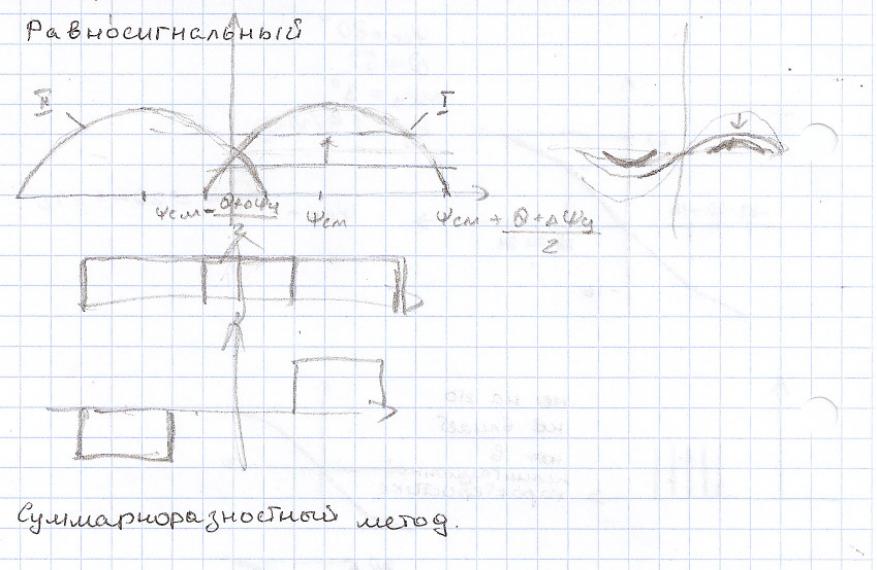 Равносигнальный
II
I
Ψсм - (θ+ΔΨу)/2
Ψсм
Ψсм + (θ+ΔΨу)/2
Суммарноразностный метод.